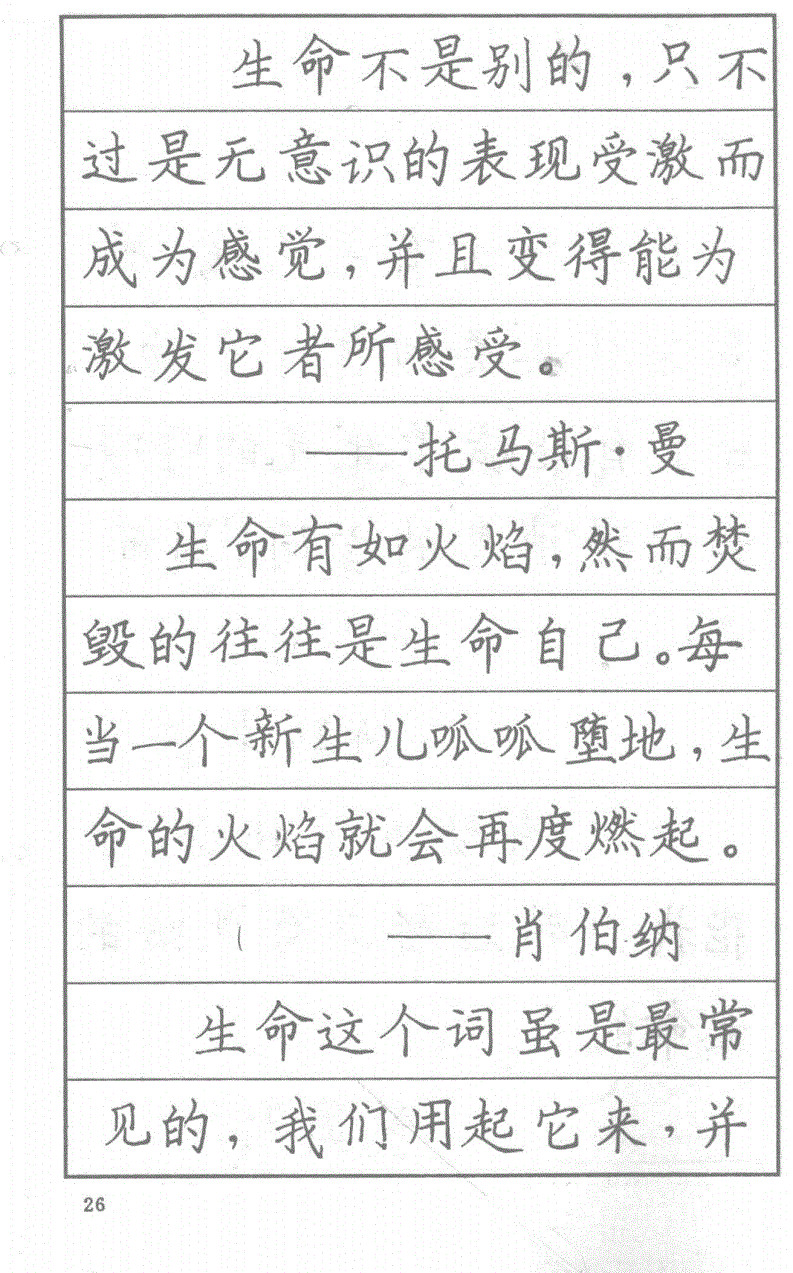 生命不是别的，只不
过是无意识的表现受激而
成为感觉，并且变得能为
激发它者所感受。
——托马斯·曼
生命有如火焰，然而焚
毁的往往是生命自己。每
当一个新生儿呱呱堕地，生
命的火焰就会再度燃起。
——肖伯纳
生命这个词虽是最常
见的，我们用起它来，并
26